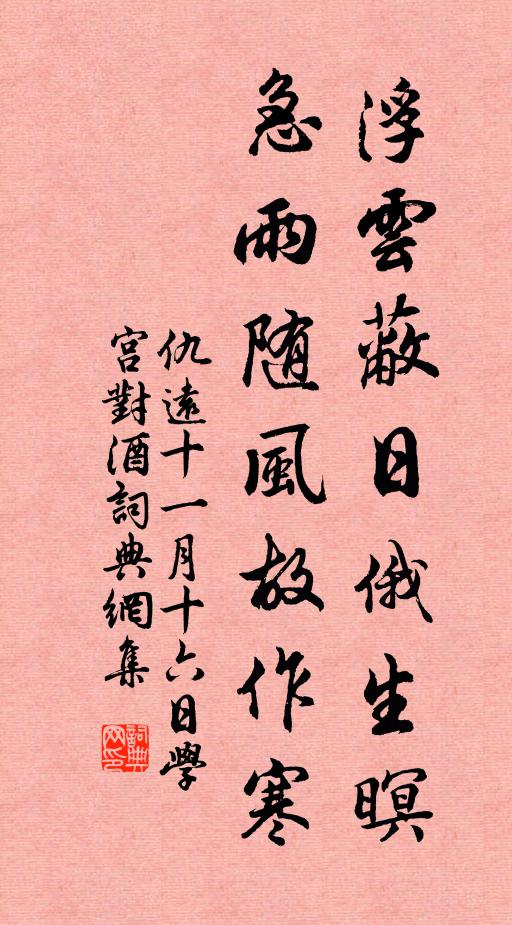 浮雲蔽日俄生暝
急雨随風故作寒
仇遠十一月十六日學
宮對酒詞典網集
詞典
网印